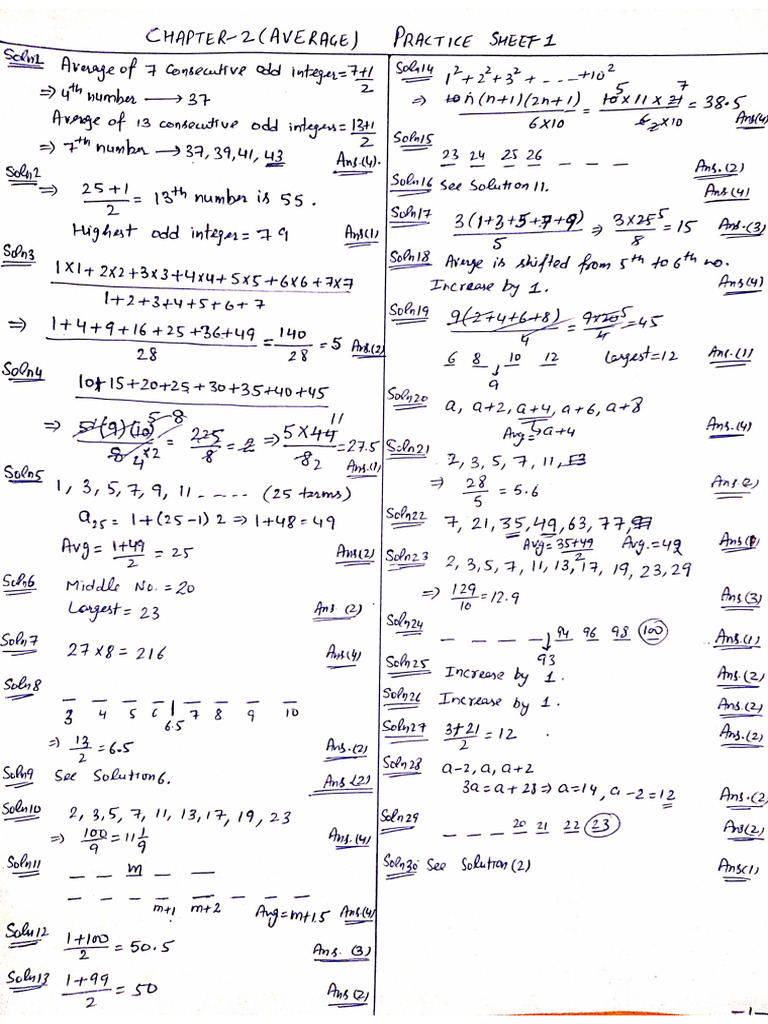 CHAPTER-2 (AVERAGE) PRACTICE SHEET 1
Soln1 Average of 7 consecutive odd integer = 7+1/2
⇒ 4th number → 37
Average of 13 consecutive odd integers = 13+1/2
⇒ 7th number → 37, 39, 41, 43 Ans.(4).
Soln2
⇒ 25+1/2 = 13th number is 55.
Highest odd integer = 79 Ans(1)
Soln3
1×1+2×2+3×3+4×4+5×5+6×6+7×7
1+2+3+4+5+6+7
⇒ 1+4+9+16+25+36+49/28 = 140/28 = 5 Ans.(2)
Soln4
10+15+20+25+30+35+40+45
⇒ = 225/8 = ⇒ 5×44/8 = 27.5
11
2
Ans.(1)
Soln5
1, 3, 5, 7, 9, 11 ..... (25 terms)
a25 = 1+(25-1)2 ⇒ 1+48 = 49
Avg = 1+49/2 = 25 Ans(2)
Soln6 Middle No. = 20
Largest = 23 Ans (2)
Soln7 27×8 = 216 Ans(4)
Soln8
3 4 5 6 | 7 8 9 10
6.5
⇒ 13/2 = 6.5 Ans.(2)
Soln9 See Solution 6. Ans (2)
Soln10 2, 3, 5, 7, 11, 13, 17, 19, 23
⇒ 100/9 = 11 1/9 Ans.(4)
Soln11 _ _ m _ _
_ _ _ m+1 m+2 _ _ _ Avg = m+1.5 Ans(4)
Soln12 1+100/2 = 50.5 Ans. (3)
Soln13 1+99/2 = 50 Ans(2)
Soln14 1²+2²+3²+ ---- +10²
⇒ n(n+1)(2n+1)/6×10 = 10×11×21/6×10 = 38.5 Ans(4)
5 7
2
Soln15
23 24 25 26 _ _ _ Ans.(2)
Soln16 See Solution 11. Ans(4)
Soln17 3(1+3+5+7+9)/5 ⇒ 3×25/5 = 15 Ans.(3)
Soln18 Averge is shifted from 5th to 6th no.
Increase by 1. Ans(4)
Soln19 9(2+4+6+8)/4 = 9×20/4 = 45
6 8 ↓ 10 12 largest = 12 Ans.(1)
9
Soln20
a, a+2, a+4, a+6, a+8
Avg → a+4 Ans.(4)
Soln21 2, 3, 5, 7, 11,
⇒ 28/5 = 5.6 Ans(2)
Soln22 7, 21, 35, 49, 63, 77,
Avg = 35+49/2 Avg. = 42 Ans(1)
Soln23 2, 3, 5, 7, 11, 13, 17, 19, 23, 29
⇒ 129/10 = 12.9 Ans(3)
Soln24 _ _ _ _ ↓ 94 96 98 100 Ans.(1)
93
Soln25 Increase by 1. Ans.(2)
Soln26 Increase by 1. Ans.(2)
Soln27 3+21/2 = 12 Ans.(2)
Soln28 a-2, a, a+2
3a = a+28 ⇒ a=14, a-2 = 12 Ans.(2)
Soln29 _ _ _ 20 21 22 23 Ans(2)
Soln30 See Solution (2) Ans(1)
-1-